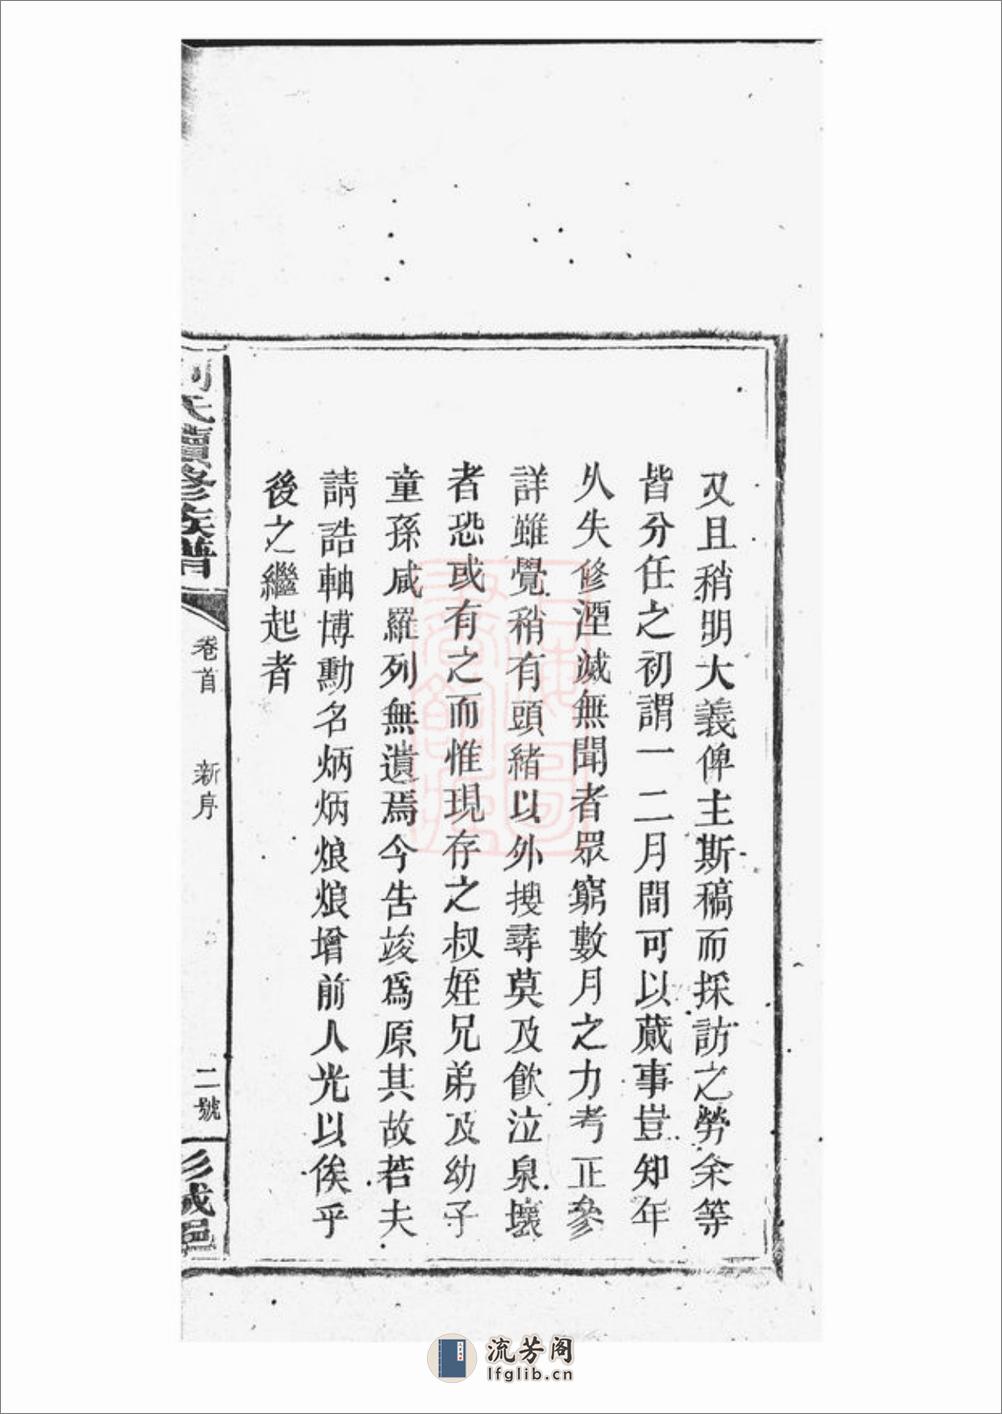 又且稍明大義俾主斯稿而採訪之勞余等
皆分任之初謂一二月間可以蕆事豈知年
久失修湮滅無聞者眾窮數月之力考正參
詳雖覺稍有頭緒以外搜尋莫及飲泣泉壤
者恐或有之而惟現存之叔姪兄弟及幼子
童孫咸羅列無遺焉今告竣爲原其故若夫
請誥軸博勳名炳炳烺烺增前人光以俟乎
後之繼起者
氏續修族譜
卷首 新序
二號
彭城邑
流芳阁
lfglib.cn